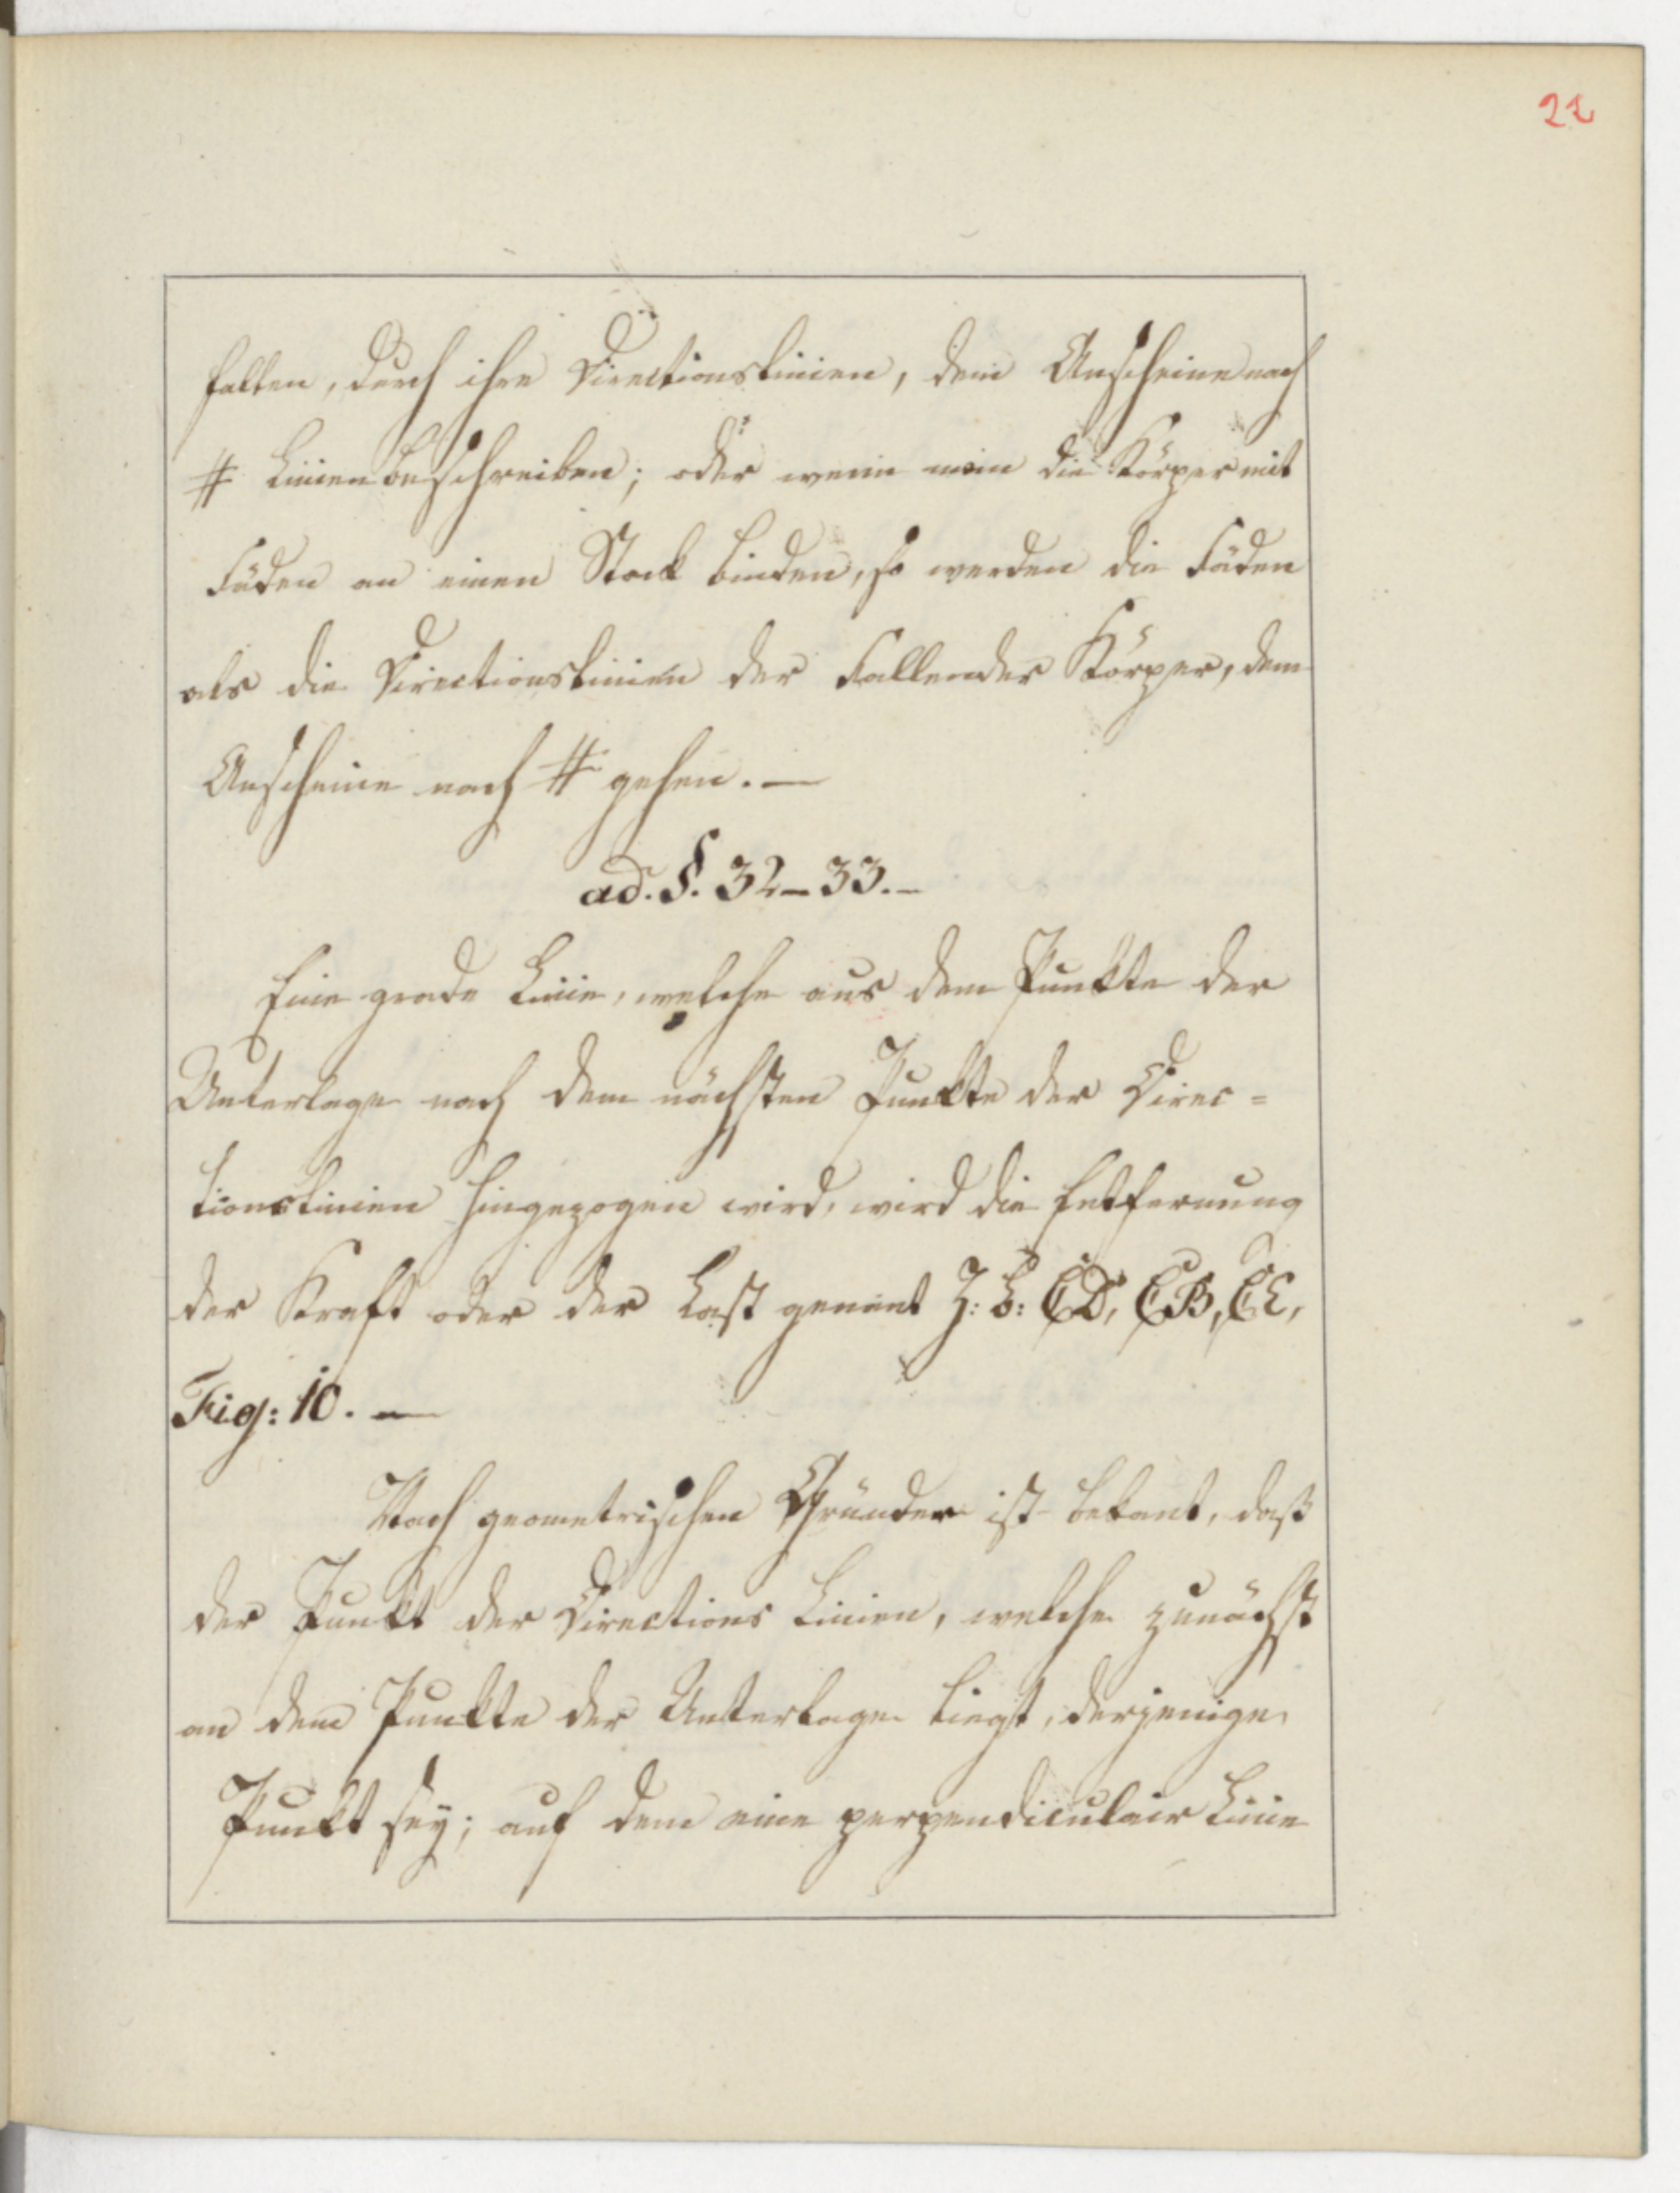 22
fallen, durch ihre Directionslinien, dem Anscheine nach
# Linien beschreiben; oder wenn man die Körper mit
Fäden an einen Stock binden, so werden die Fäden
als die Directionslinien der Fallender Körper, dem
Anscheine nach # gehen. —
ad. §. 32 – 33. –
Eine grade Linie, welche aus dem Punkte der
Unterlage nach dem nächsten Punkte der Direc=
tionslinien hingezogen wird, wird die Entfernung
der Kraft oder der Last genant Z: B: CD, CB, CE,
Fig: 10. —
Nach geometrischen Gründen ist bekant, daß
der Punkt der Directions Linien, welche zunächst
an dem Punkte der Unterlage liegt, derjenige
Punkt sey; auf dem eine perpendiculair Linie